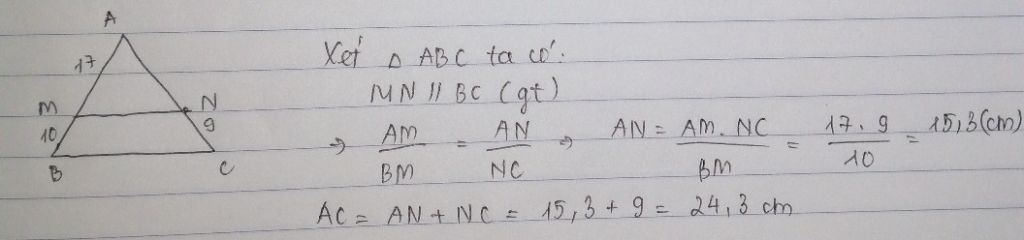 A
17
M
N
10
9
B
C
Xét Δ ABC ta có:
MN // BC (gt)
⇒ AM/BM = AN/NC ⇒ AN = AM . NC/BM = 17 . 9/10 = 15,3 (cm)
AC = AN + NC = 15,3 + 9 = 24,3 cm